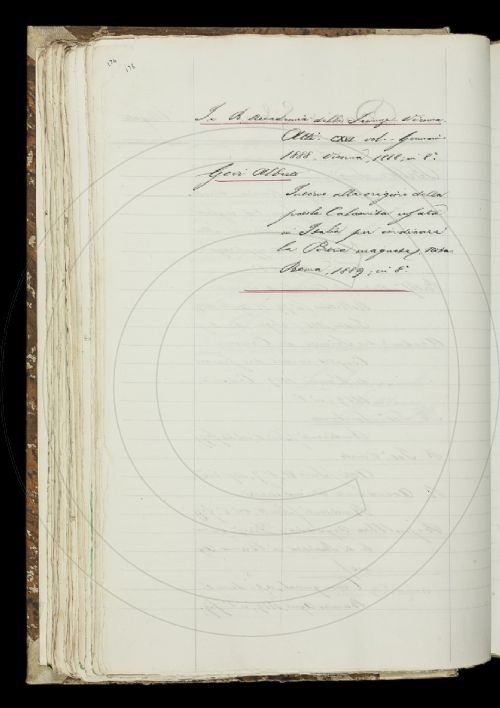 176
176
I. R. Accademia delle Scienze. Vienna.
Atti. CXVI vol. Gennaio
1888. Vienna, 1888; in 8°.
Govi Alberto
Intorno alla origine della
parola Calamita usata
in Italia per indicare
la Pietra magnete,
Roma, 1889; in 8°